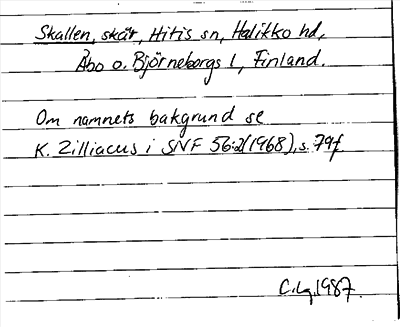 Skallen, skär, Hitis sn, Halikko hd,
Åbo o. Björneborgs l, Finland.
Om namnets bakgrund se
K. Zilliacus i SNF 56:2(1968), s. 79f.
C.Lg.1987.